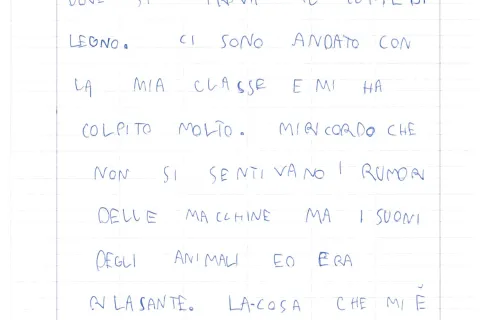 DOVE SI TROVA IL
LEGNO. CI SONO ANDATO CON
LA MIA CLASSE E MI HA
COLPITO MOLTO. MI RICORDO CHE
NON SI SENTIVANO I RUMORI
DELLE MACCHINE MA I SUONI
DEGLI ANIMALI ED ERA
RILASANTE. LA COSA CHE MI È